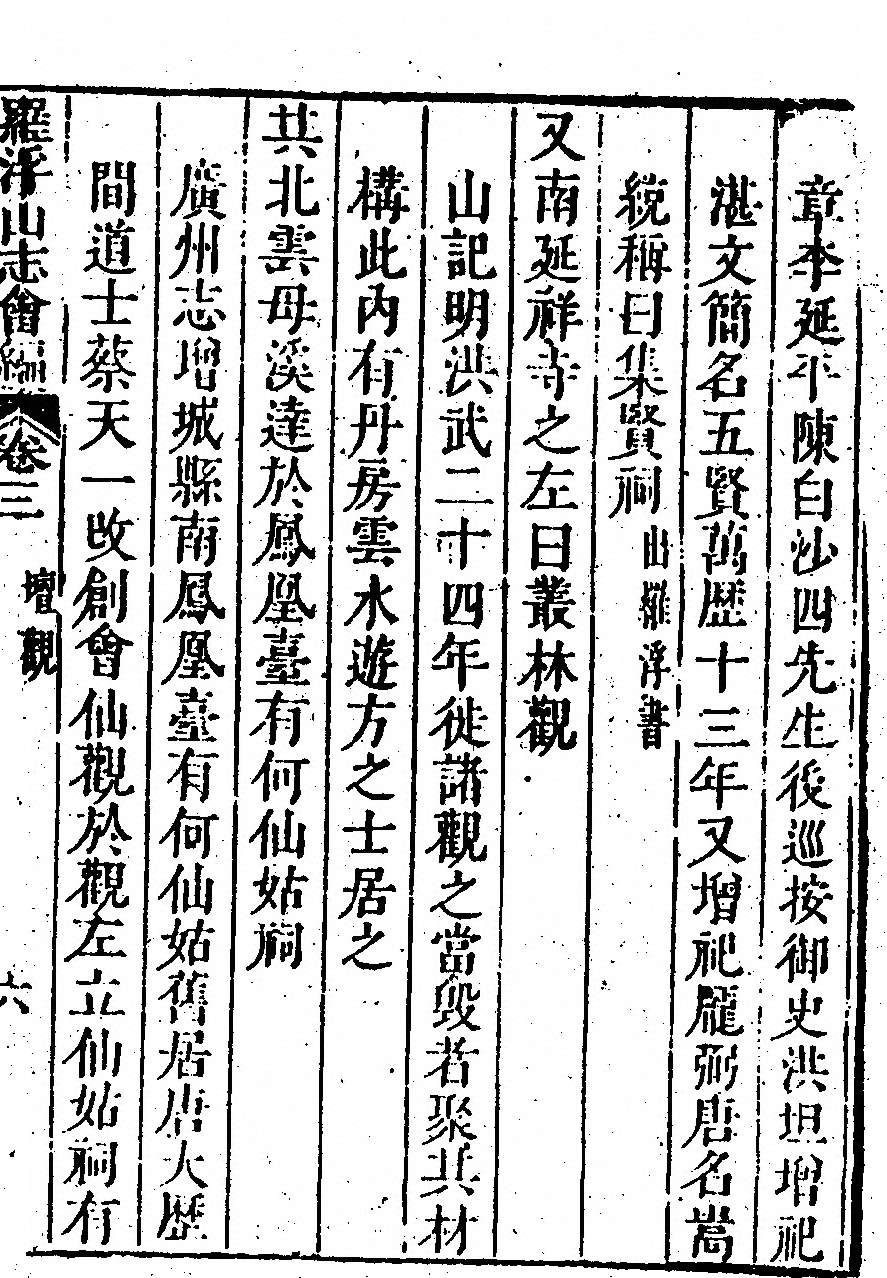 章李延平陳白沙四先生後巡按御史洪垣增祀
湛文簡名五賢萬歷十三年又增祀龐弼唐名嵩
統稱曰集賢祠出羅浮書
又南延祥寺之左曰叢林觀
山記明洪武二十四年徙諸觀之當毀者聚其材
構此內有丹房雲水遊方之士居之
其北雲母溪達於鳳凰臺有何仙姑祠
廣州志增城縣南鳳凰臺有何仙姑舊居唐大歷
間道士蔡天一改創會仙觀於觀左立仙姑祠有
羅浮山志會編 卷三 壇觀 六